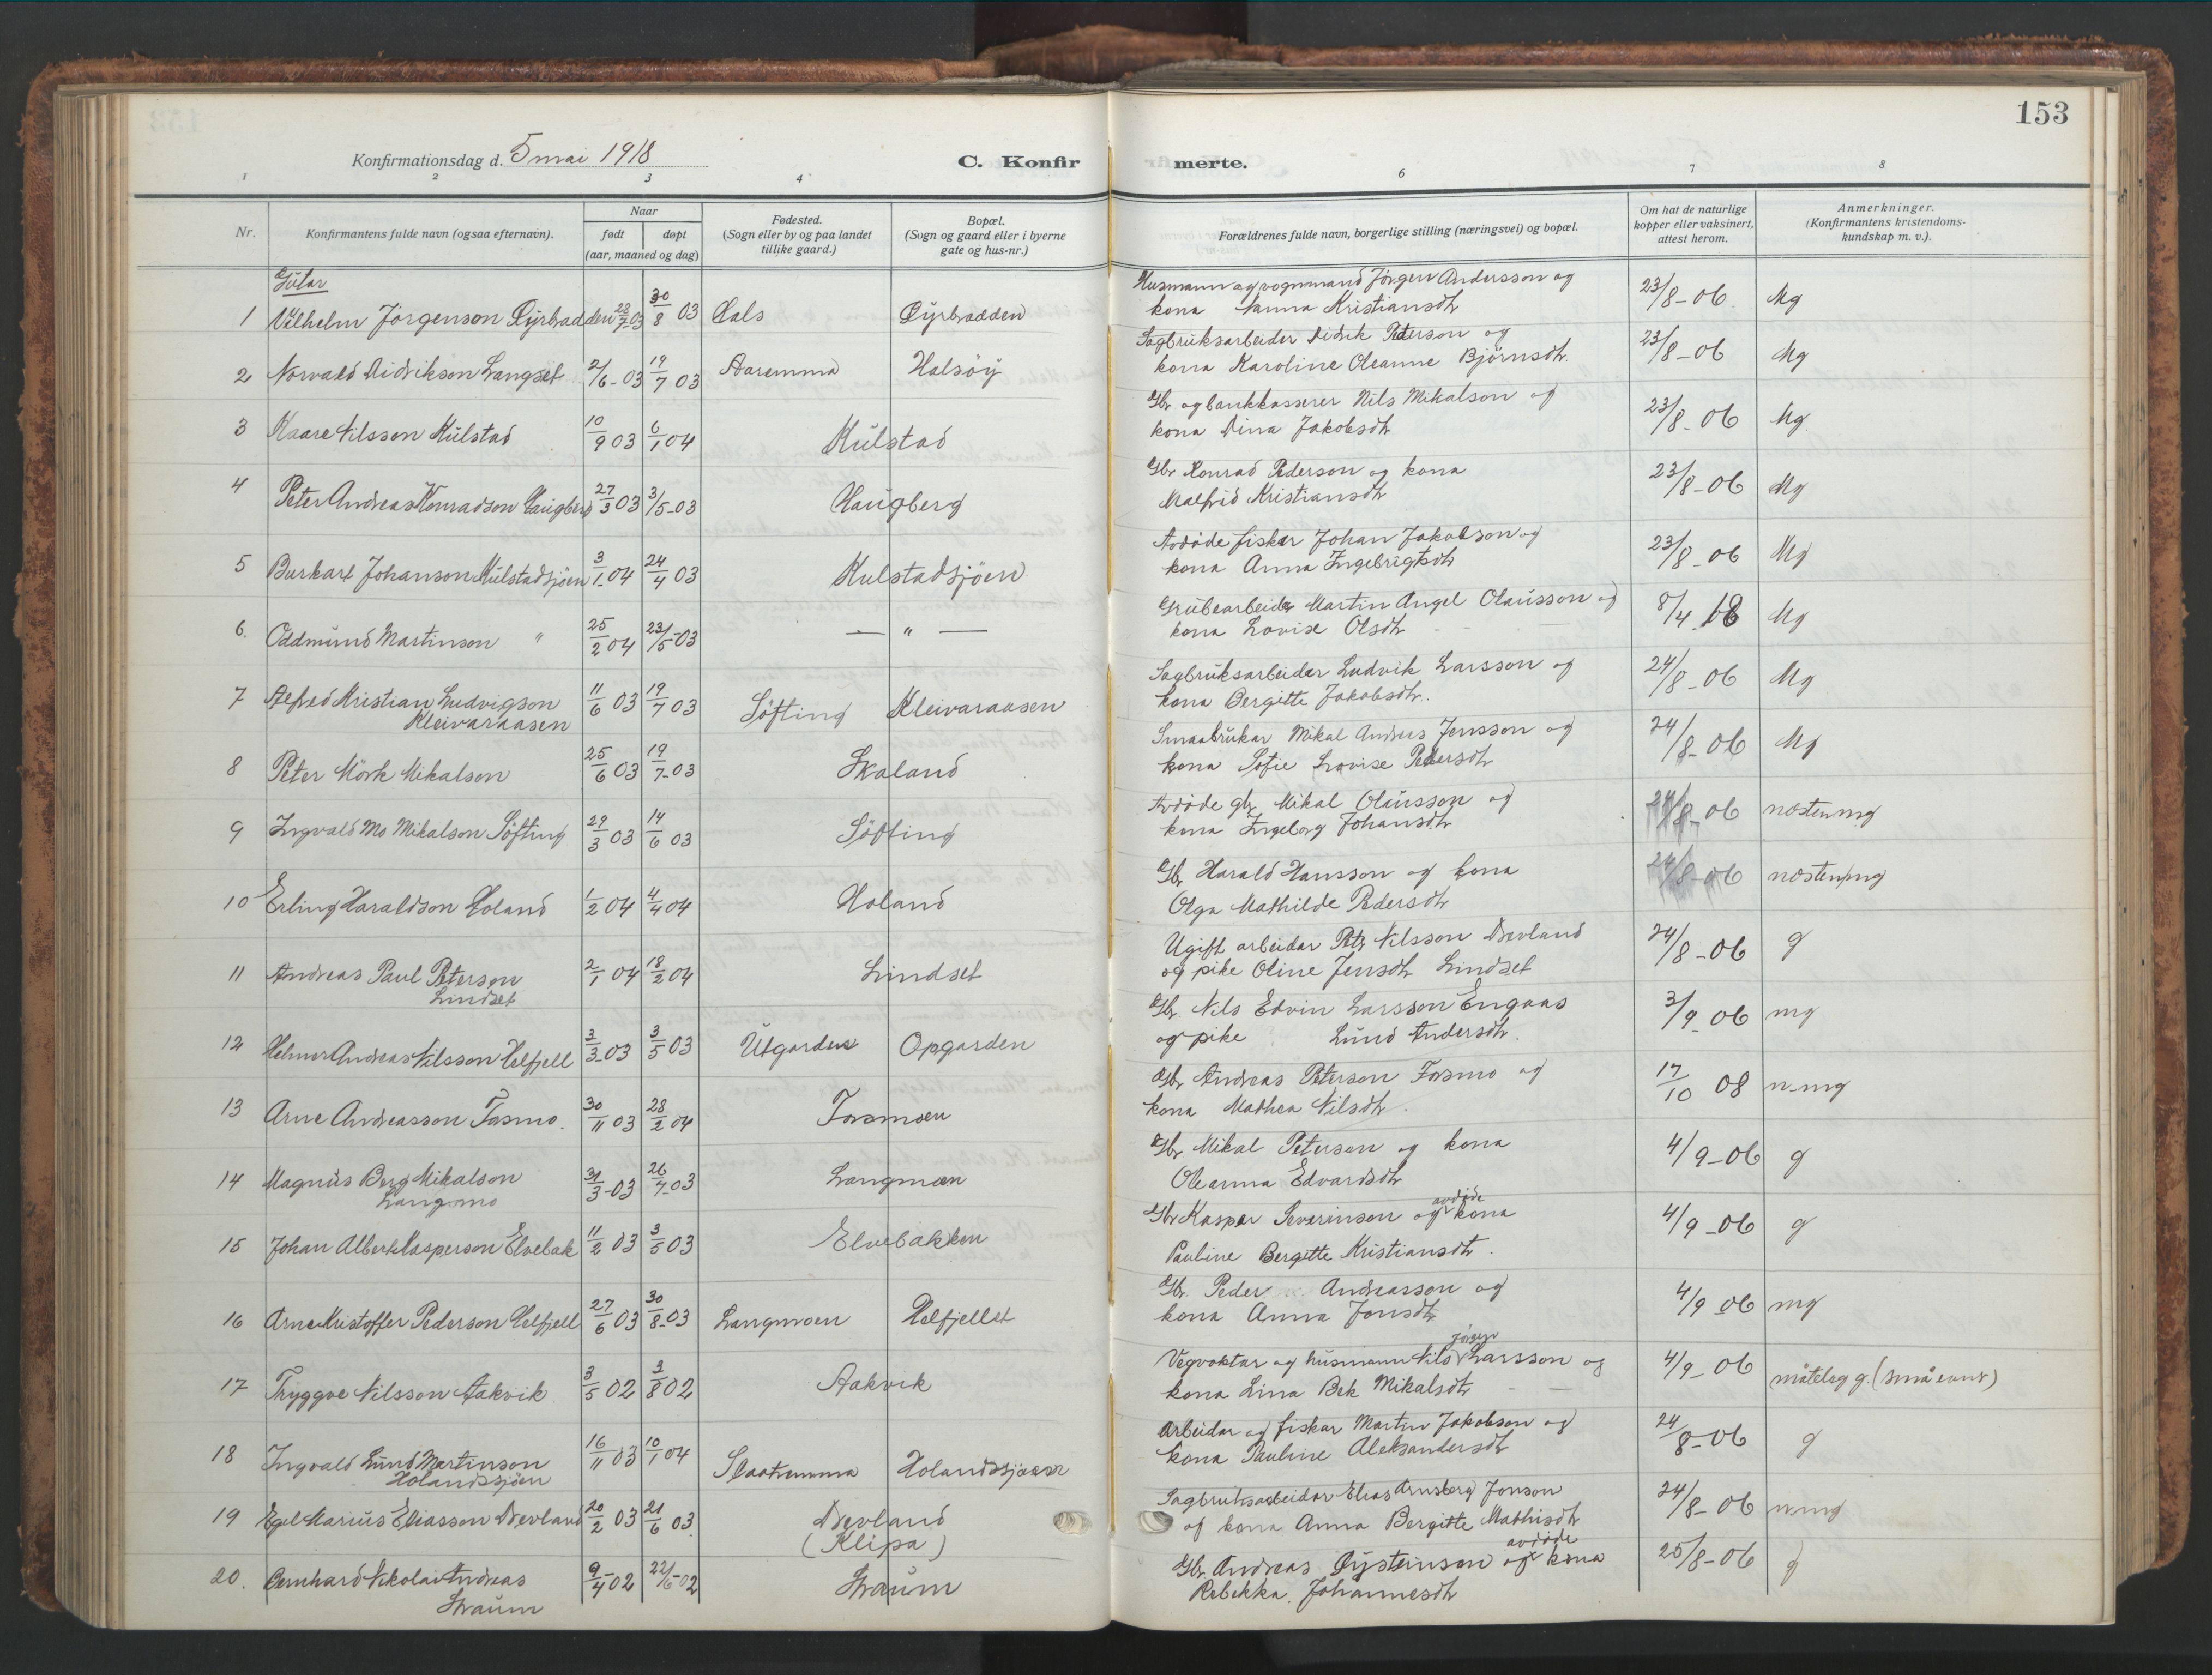 153
Konfirmationsdag d. 5 mai 1918
C. Konfirmerte.
1 2 3 4 6 7 8
Nr. | Konfirmantens fulde navn (ogsaa efternavn). | Naar født døpt (aar, maaned og dag) | Fødested. (Sogn eller by og paa landet tillike gaard.) | Bopæl. (Sogn og gaard eller i byerne gate og hus-nr.) | Forældrenes fulde navn, borgerlige stilling (næringsvei) og bopæl. | Om hat de naturlige kopper eller vaksinert, attest herom. | Anmerkninger. (Konfirmantens kristendomskundskap m. v.).
Gutar
1 Vilhelm Jörgenson Dyrhadden 28/7-03 30/8 03 Hals Dyrhadden Husmann og vognmand Jörgen Andersson og kona Nanna Kristiansdtr 23/8-06. Mg
2 Norvald Didrikson Langset 2/6-03 19/7 03 Aaremma Halsöy Sagbruksarbeider Didrik Peterson og kona Karoline Oleanne Björnsdtr. 23/8-06 Mg
3 Kaare Nilsson Kulstad 10/9 03 6/1 04 Kulstad Gbr og bankkasserer Nils Mikalson og kona Dina Jakobsdtr 23/8-06 Mg
4 Peter Andreas Konradson Haugberg 27/3 03 3/5-03 Haugberg Gbr Konrad Pederson og kona Malfrid Kristiansdtr 23/8-06 Mg
5 Burkart Johanson Kulstadsjöen 3/1-04 24/4 03 Kulstadsjöen Avdöde fiskar Johan Jakobson og kona Anna Ingebrigtsdtr 23/8-06 Mg
6. Oddmund Martinson " 25/2 04 23/5-03 — " — Grubearbeider Martin Angel Olausson og kona Lovise Olsdtr 8/4 18 Mg
7 Alfred Kristian Ludvigson Kleivaraasen 11/6 03 19/7 03 Söfting Kleivaraasen Sagbruksarbeidar Ludvik Larsson og kona Bergitte Jakobsdtr. 24/8-06 Mg
8 Peter Mörk Mikalson 25/6 03 19/7-03 Skaland Smaabrukar Mikal Andreas Jensson og kona Sofie Lovise Pedersdtr 24/8-06 Mg
9 Ingvald Mo Mikalson Söfting 29/3 03 14/6 03 Söfting Avdöde gbr Mikal Olausson og kona Ingeborg Johansdtr 24/8-06 næsten mg
10 Erling Haraldson Holand 1/2 04 4/4 04 Holand Gbr Harald Hansson og kona Olga Mathilde Pedersdtr 24/8-06 næsten mg
11 Andreas Paul Peterson Lindset 2/1 04 18/2 04 Lindset Ugift arbeidar Petr Nilsson Devland og pike Oline Jensdtr Lindset 24/8-06 g
12 Helmer Andreas Nilsson Helfjell 3/3-03 3/5 03 Utgarden Opgarden Gbr. Nils Edvin Larsson Engaas og pike Lund Andersdtr. 3/9 06 mg
13 Arne Andreasson Fosmo. 30/11 03 28/2 04 Forsmoen Gbr Andreas Peterson Fosmo og kona Mathea Nilsdtr. 17/10 08 n-mg
14 Magnus Berg Mikalson Langmo 31/3-03 26/7-03 Langmoen Gbr Mikal Peterson og kona Oleanna Edvardsdtr 4/9-06 g
15 Johan Albert Kasperson Elvebak 11/2 03 3/5 03 Elvebakken Gbr Kasper Severinson og avdöde kona Pauline Bergitte Kristiansdtr. 4/9-06 g
16 Arne Kristoffer Pederson Helfjell 27/6 03 30/8-03 Langmoen Helfjellet Gbr. Peder Andreasson og kona Anna Jonsdtr 4/9 06 mg
17 Tryggve Nilsson Aakvik 3/5 02 3/8 02 Aakvik Vegvoktar og husmann Nils Jörgen Larsson og kona Lina Bek Mikalsdtr 4/9-06 måteleg g. (små evner)
18 Ingvald Lund Martinson Holandssjöen 16/11 03 10/1 04 Holandssjöen Arbeidar og fiskar Martin Jakobson og kona Pauline Aleksandersdtr 24/8-06 g
19 Egil Marius Eliasson Devland 20/2 03 21/6 03. Devland (Klipa) Sagbruksarbeidar Elias Arnsberg Jonson og kona Anna Bergitte Mathisdtr 24/8-06 n-mg
20. Bernhard Nikolai Andreas Straum 9/4-02 22/6-02 Straum Gbr. Andreas Öysteinson og avdöde kona Rebekka Johannesdtr 25/8-06 g